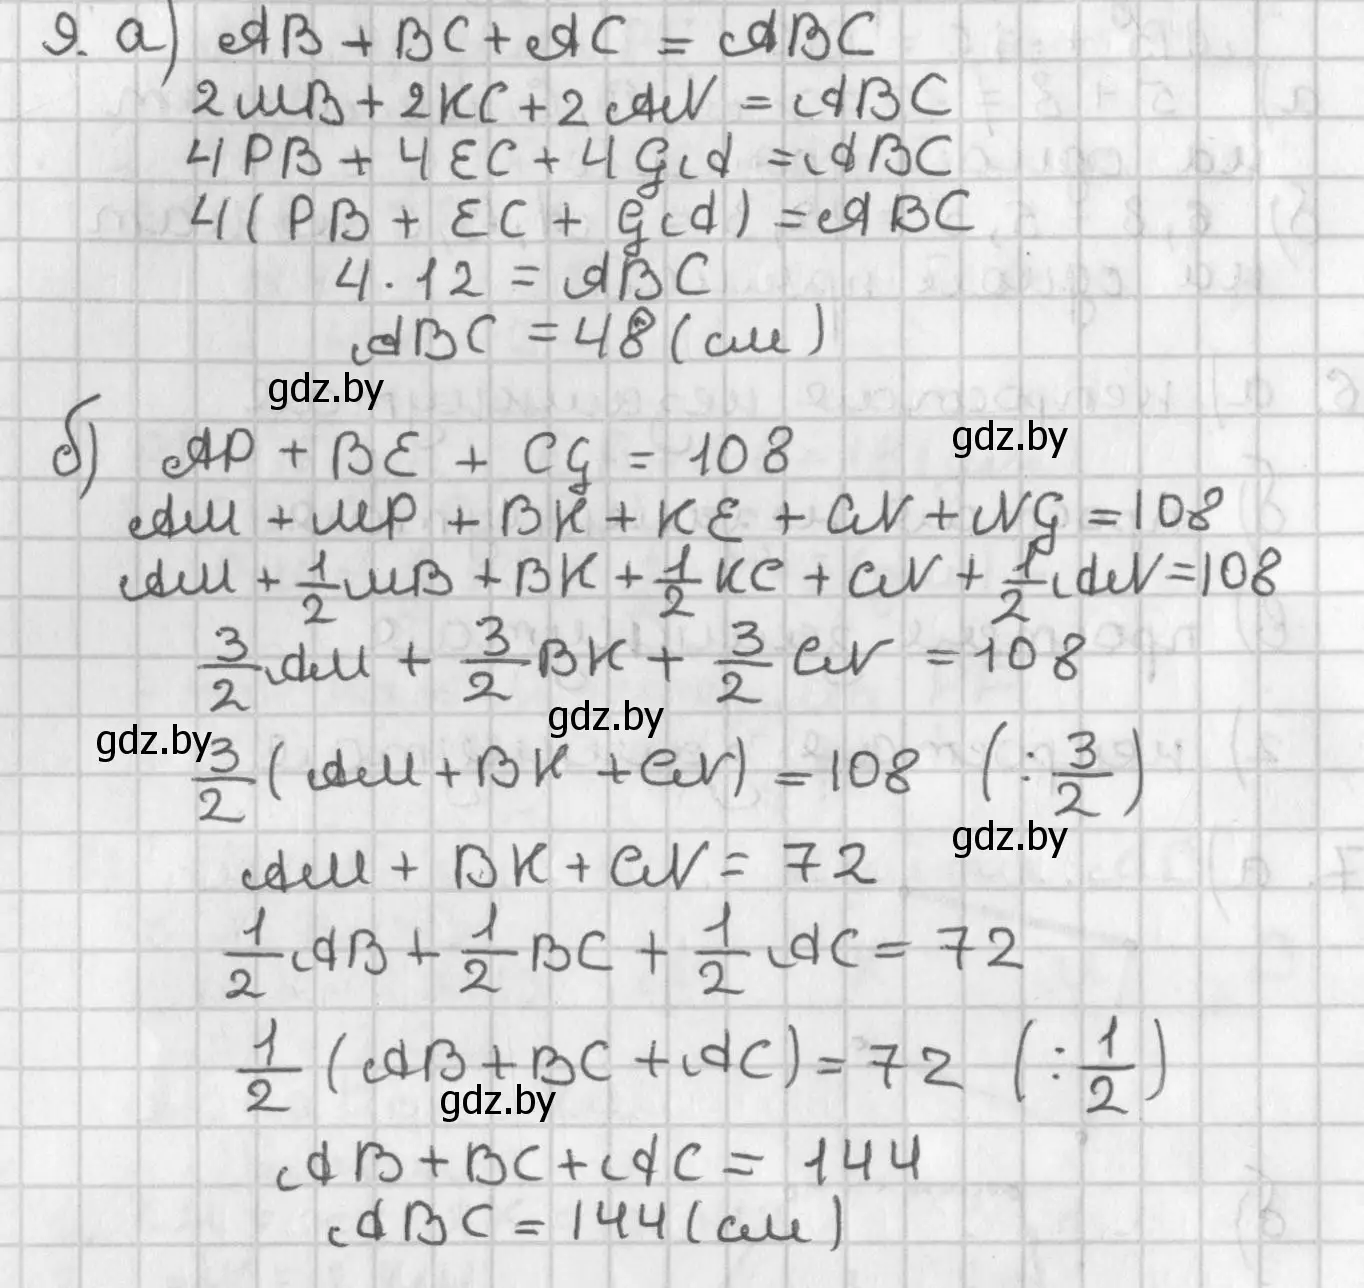 9. а) AB + BC + AC = ABC
2MB + 2KC + 2AN = ABC
4PB + 4EC + 4GA = ABC
4(PB + EC + GA) = ABC
4 · 12 = ABC
ABC = 48 (см)
gdz.by
gdz.by
б) AP + BE + CG = 108
AM + MP + BK + KE + CN + NG = 108
AM + 1/2 MB + BK + 1/2 KC + CN + 1/2 AN = 108
3/2 AM + 3/2 BK + 3/2 CN = 108
gdz.by
gdz.by
3/2 (AM + BK + CN) = 108 (: 3/2)
gdz.by
AM + BK + CN = 72
1/2 AB + 1/2 BC + 1/2 AC = 72
1/2 (AB + BC + AC) = 72 (: 1/2)
gdz.by
AB + BC + AC = 144
ABC = 144 (см)